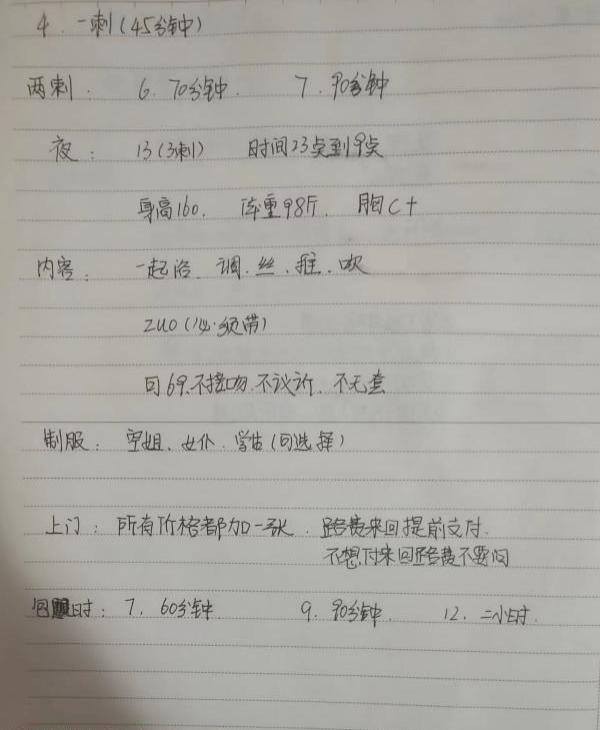 4. 一刺(45分钟)
两刺: 6. 70分钟. 7. 90分钟
夜: 13(3刺) 时间23点到9点
身高160. 体重98斤. 胸C+
内容: 一起浴. 调. 丝. 推. 吹
zuo(必须带)
可69.不接吻.不议价.不无套
制服: 空姐. 女仆. 学生(可选择)
上门: 所有价格都加一张. 路费来回提前支付.
不想付来回路费不要问
包时: 7. 60分钟. 9. 90分钟. 12. 二小时.